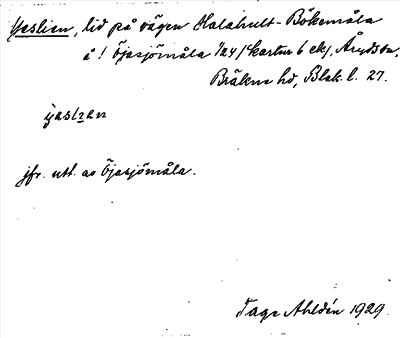 Yaslien, lid på vägen Halahult - Bökemåla
å ! Öjasjömåla 1/24 (kartan 6 ek), Åryds sn,
Bräkne hd, Blek. l. 27.
ÿaslien
jfr. utt. av Öjasjömåla.
Tage Ahldén 1929.